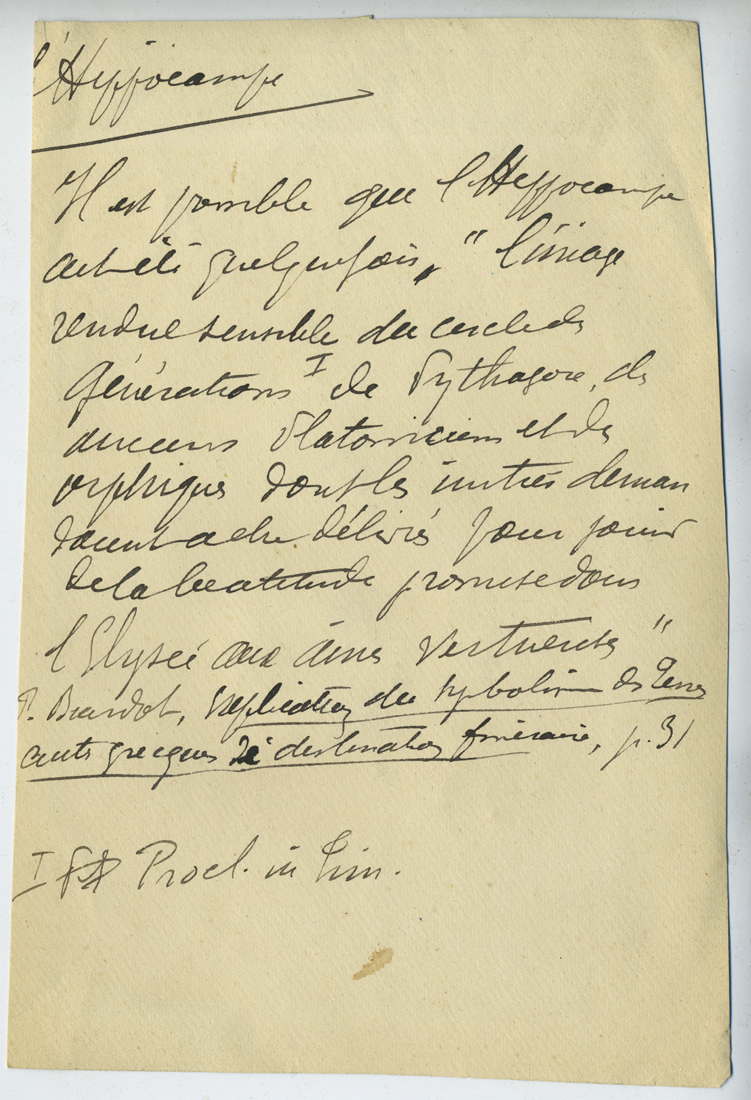 l'Hippocampe
Il est possible que l'Hippocampe
ait été quelquefois, " l'image
rendue sensible du cercle des
générations I de Pythagore, des
anciens Platoniciens et des
orphiques dont les initiés deman
daient a être délivrés pour jouir
de la béatitude promise dans
l'Elysée aux âmes vertueuses "
P. Biardot, Explication du symbolisme des Terres
cuites grecques de destination funéraire, p. 31
I Procl. in Tim.